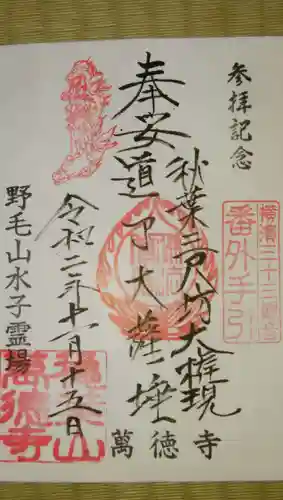 参拝記念
横濱三十三観音
番外手引
秋葉三尺坊大権現
奉安道了大薩埵
令和二年十一月十五日
野毛山水子霊場
萬徳寺
萬徳寺